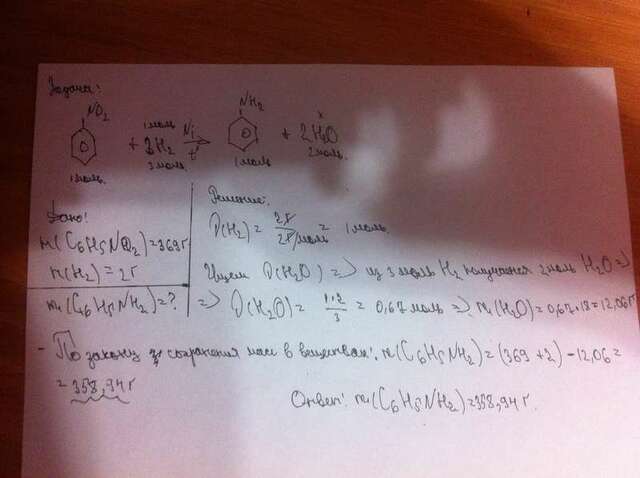 Задача:
NO₂ NH₂ x
1 моль Ni
+ 3H₂ → + 2H₂O
t
1 моль. 3 моль. 1 моль 2 моль.
Дано:
m(C₆H₅NO₂)=369г
m(H₂)=2г
m(C₆H₅NH₂)=?
Решение:
ν(H₂)= 2г / 2г/моль = 1 моль.
Ищем ν(H₂O) => из 3 моль H₂ получается 2 моль H₂O =>
=> ν(H₂O)= 1·2/3 = 0,67 моль => m(H₂O)=0,67·18=12,06г
- По закону сохранения масс в веществах: m(C₆H₅NH₂)=(369+2)-12,06=
=358,94г
Ответ: m(C₆H₅NH₂)=358,94г.